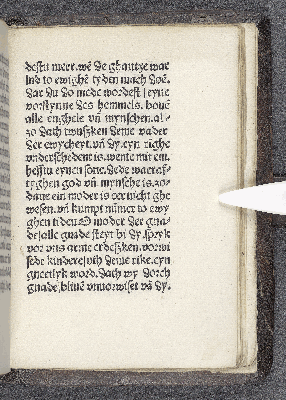 destu mere. wē de ghantze wer
lnd to ewighē tyden mach dōē.
Dar du do mede wordest eyne
vorstynne des hemmels. bouē
alle enghele vñ mynschen. al-
zo dath twuszken deme vader
der ewycheyt. vñ dy. eyn nighe
vnderschedent is. wente mit em.
hefstu eynen sone. Dede waeraf-
tyghen god vñ mynsche is. zo-
dane ein moder is ɔer nicht ghe
wesen. vñ kumpt nūmer to ewy
ghen tiden O moder der gna-
de. alle gnade steyt bi dy. spryk
vor vns arme erdeszken. vorwi
sede kindere vth deme rike. eyn
gnetlyk word. dath wy dorch
gnade. bliuē vnuorwiset vā dy.